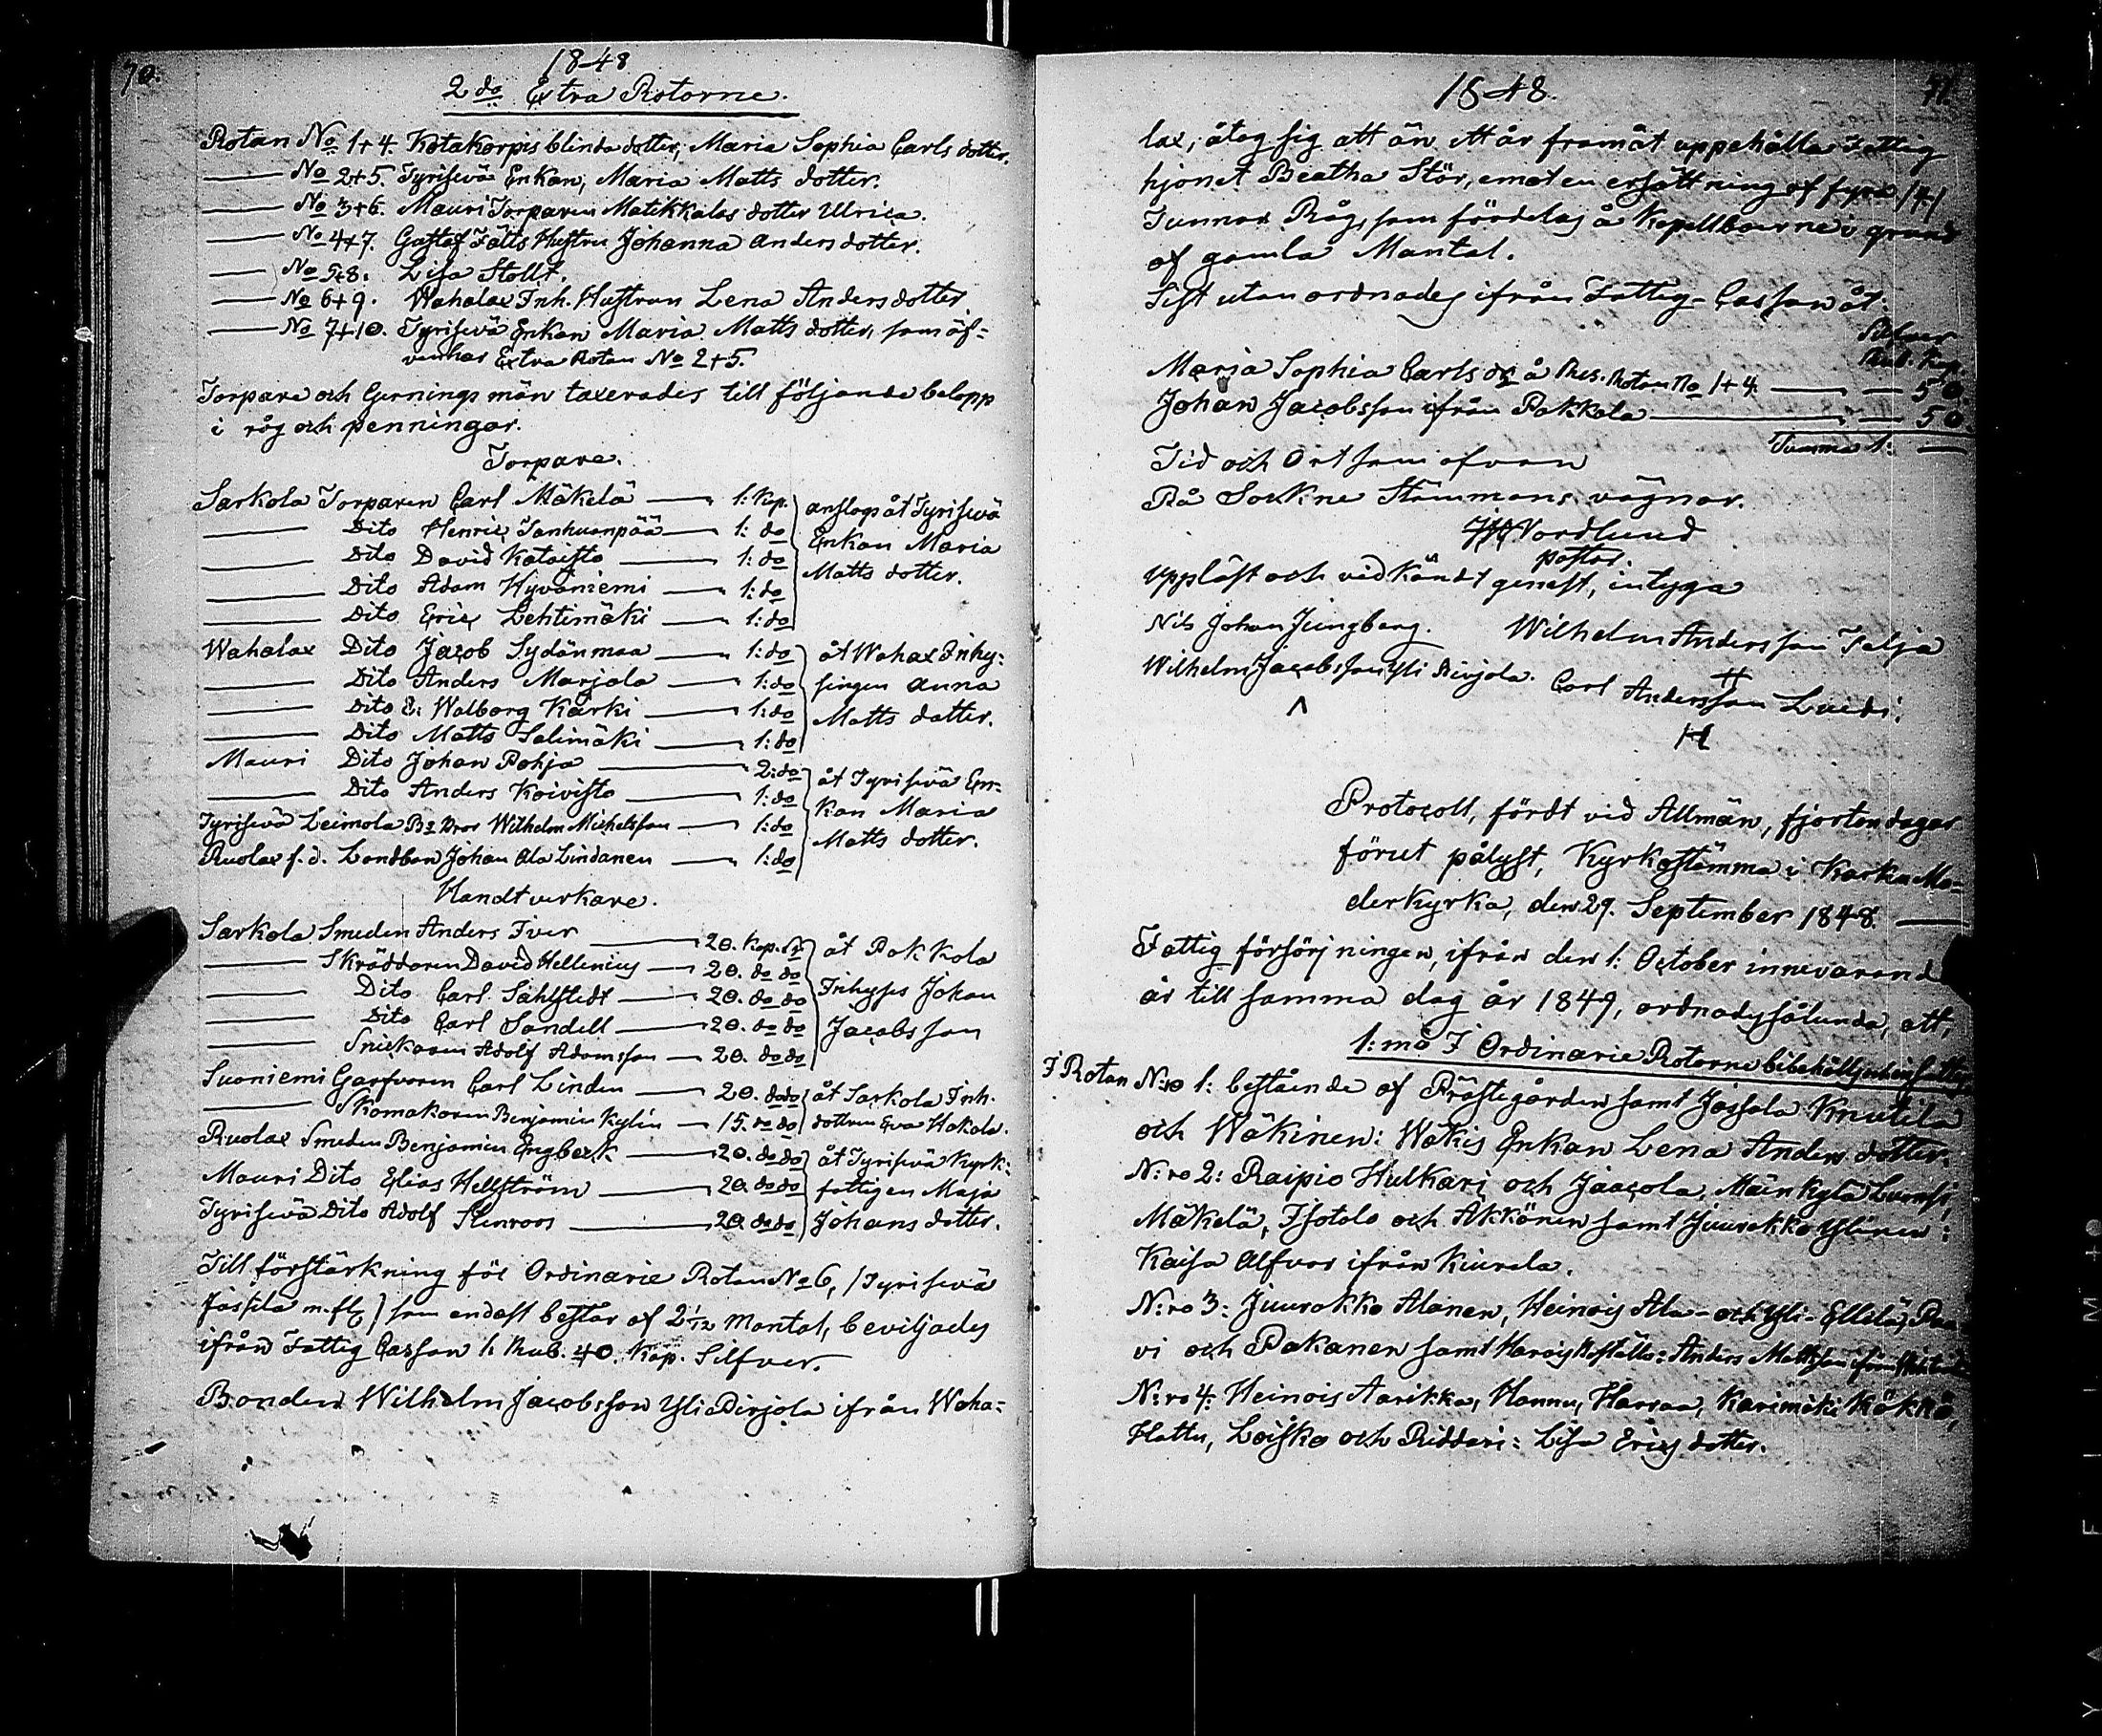 70.
1848
2do Extra Rotorne.
Rotan No 1+4. Kotakorpis blinda dotter, Maria Sophia Carls dotter.
—— No 2+5. Tyrisevä Enkan, Maria Matts dotter.
—— No 3+6. Mauri Torparen Matikkalas dotter Ulrica.
—— No 4+7. Gustaf Fälts Hustru Johanna Anders dotter.
—— No 5+8. Lisa Stollt.
—— No 6+9. Wahalax Inh. Hustrun Lena Anders dotter
—— No 7+10. Tyrisevä Enkan Maria Matts dotter, som äf-
ven har Extra Rotan No 2+5.
Torpare och Gernings män taxerades till följande belopp
i råg och penningar.
Torpare.
Sarkola Torparen Carl Mäkelä —— 1: Kap. anslogs åt Tyrisevä
—— Dito Henric Tanhuanpää —— 1: do Enkan Maria
—— Dito David Kataisto —— 1: do Matts dotter.
—— Dito Adam Hyvöniemi —— 1: do
—— Dito Eric Lehtimäki —— 1: do
Wahalax Dito Jacob Sydänmaa —— 1: do åt Wahax Inhy-
—— Dito Anders Marjola —— 1: do singen Anna
—— Dito E: Walborg Kärki —— 1: do Matts dotter.
—— Dito Matts Salimäki —— 1: do
Mauri Dito Johan Pohja —— 2: do åt Tyrisevä En-
—— Dito Anders Koivisto —— 1: do kan Maria
Tyrisevä Leimola Bo Bror Wilhelm Michelsson —— 1: do Matts dotter.
Ruolax f. d. Landbon Johan Ala Lindanen —— 1: do
Handtverkare.
Sarkola Smeden Anders Iver —— 20. Kop. Sr åt Pakkola
—— Skräddaren David Hellenius —— 20. do do Inhyses Johan
—— Dito Carl Sahlstedt —— 20. do do Jacobsson
—— Dito Carl Sandell —— 20. do do
—— Snickaren Adolf Adamsson —— 20. do do
Suoniemi Garfvaren Carl Linden —— 20. do do åt Sarkola Inh.
—— Komakaren Benjamin Kylin —— 15. do do dottren Eva Hakala.
Ruolax Smeden Benjamin Engberk —— 20. do do åt Tyrisevä Kyrk-
Mauri Dito Elias Hellström —— 20. do do fattigen Maja
Tyrisevä Dito Adolf Stenroos —— 20. do do Johans dotter.
Till förstärkning för Ordinarie Rotan No 6, /Tyrisevä
Jassila m. fl/ som endast bestar af 2 1/12 Mantal, beviljades
ifrån Fattig Cassan 1. Rub. 40. Kop. Silfver.
Bonden Wilhelm Jacobsson Yli Pirjola ifrån Waha-
1848. 71.
lax, åtog sig att än ett år framåt uppehålla Fattig
hjonet Beatha Stör, emot en ersättning af fyra /4/
Tunnor Råg, som fördelas å Kapellboerne i grund
af gamla Mantal.
Sist utan ordnades ifrån Fattig-Cassan åt.
Silfver
Rub. Kop.
Maria Sophia Carls dr å Res. Rotan No 1+4. —— 50.
Johan Jacobsson ifrån Pakkola —— 50.
Summa 1: ——
Tid och Ort som ofvan
På Sockne Stämmans vägnar.
Nordlund
pastor.
Uppläst och vidkändt genast, intyga
Nils Johan Jungberg. Wilhelm Andersson Telja
Wilhelm Jacobsson Yli Pirjola. Carl Andersson Luedi.
Protocoll, fördt vid Allmän, fjorton dagar
förut pålyst, Kyrkostämma i Karku Mo-
derkyrka, den 29. September 1848. ——
Fattig försörjningen, ifrån den 1: October innevarande
år till samma dag år 1849, ordnades sålunda, att,
1:mo I Ordinarie Rotorne bibehålles
I Rotan N:ro 1: bestående af Prästegården samt Jassala Knutila
och Wäkinen: Wäkis Enkan Lena Anders dotter.
N:ro 2: Raipio Hulkari och Jaacola, Mäenkylä
Mäkelä, Isotalo och Äkkönen samt Juurakko Ylinen:
Kaisa Alfvar ifrån Kiurala.
N:ro 3: Juurakko Alanen, Heinois Ala- och Yli-Ellilä,
vi och Pakanen samt : Anders Mattsson ifrån
N:ro 4: Heinois Aarikka, Hannu, Harraa, Karimäki Kökkö,
Hattu, Loisko och Riddari: Lisa Erics dotter.